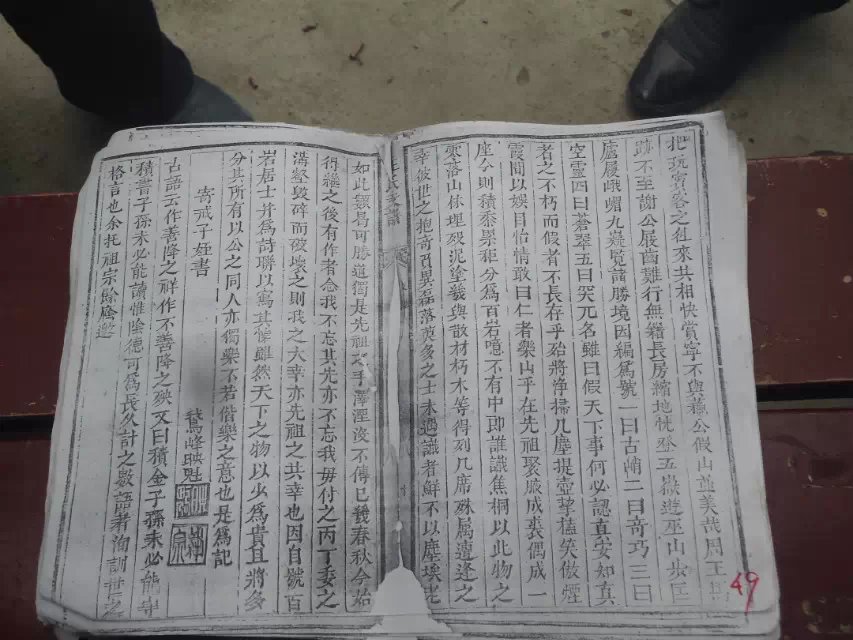 把玩賞咨之徃來共相快賞寧不與蘇公假山並美哉周王
跡不至謝公屐齒難行無縮長房縮地恍登五嶽遊巫山步匡
廬履峨嵋九嶷覽諸勝境因編為號一曰古峭二曰奇巧三曰
空靈四曰蒼翠五曰突兀名雖曰假天下事何必認直安如真
者之不朽而假者不長存乎殆將淨掃几塵提壺摯榼笑傲煙
霞間以娛目怡情敢曰仁者樂山乎在先祖聚族成裘偶成一
座今則積黍累秬分為百岩噫不有中郎誰識焦桐以此物之
寥落山林埋殁泥塗幾與散材朽木等得列几席殊屬遭逢之
幸彼世之抱奇負異磊落英多之士未遇識者鮮不以塵埃老
如此類曷可勝道獨是先祖之手澤湮沒不傳已幾春秋今始
得禭之後有作者念我不忘其先亦不忘我毋付之丙丁委之
溝壑毀碎而破壞之則我之大幸亦先祖之共幸也因自號百
岩居士并為詩聯以寫其懷雖然天下之物以少為貴且將多
分其所有以公之同人亦獨樂不若偕樂之意也是為記
鷲峰映魁
寄戒子姪書
古語云作善降之祥作不善降之殃又曰積金子孫未必能守
積書子孫未必能讀惟陰德可為長久計之數語者洵訓世之
格言也余托祖宗餘廕選
49